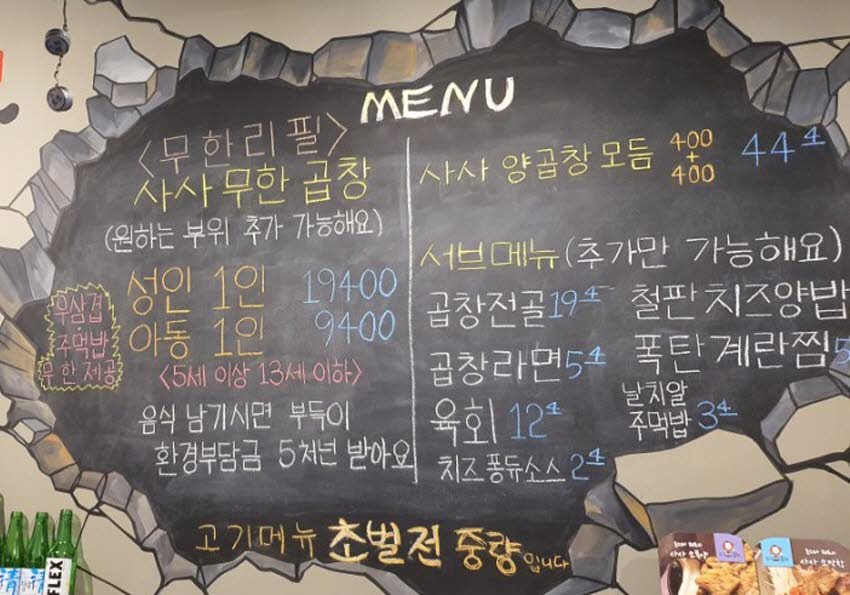 MENU
<무한리필>
사사 무한 곱창
(원하는 부위 추가 가능해요)
우삼겹
주먹밥
무한제공
성인 1인 19400
아동 1인 9400
<5세 이상 13세 이하>
음식 남기시면 부득이
환경부담금 5처넌 받아요
사사 양곱창 모듬 400+400 44.4
서브메뉴 (추가만 가능해요)
곱창전골 19.4 철판치즈양밥
곱창라면 5.4 폭탄계란찜 5
육회 12.4 날치알 주먹밥 3.4
치즈퐁듀소스 2.4
고기메뉴 초벌전 중량입니다
FLEX
清